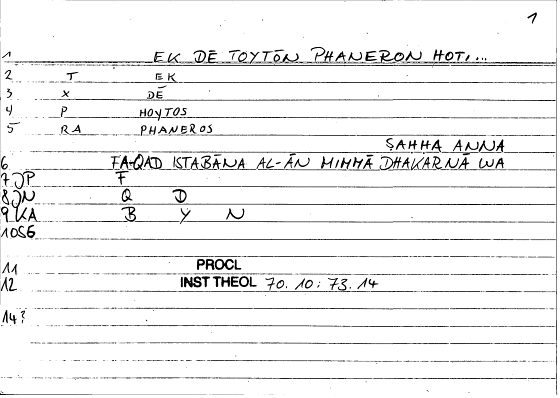 1
1 EK DĒ TOYTŌN PHANERON HOTI,...
2 T EK
3 X DĒ
4 P HOYTOS
5 RA PHANEROS
ṢAḤḤA ANNA
6 FA-QAD ISTABĀNA AL-ĀN MIMMĀ DHAKARNĀ WA
7 JP F
8 JN Q D
9 KA B Y N
10 SG
11 PROCL
12 INST THEOL 70.10: 73.14
14?